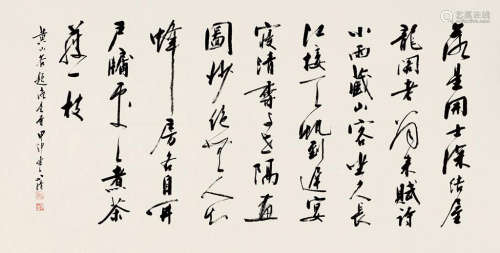 落星開士深結屋
龍閣老翁来賦詩
小雨藏山客坐久長
江接天帆到遲宴
寢清香與世隔畫
圖妙绝無人知
蜂房各自開
戶牖處々煮茶
藤一枝
黄山谷題落星寺甲申